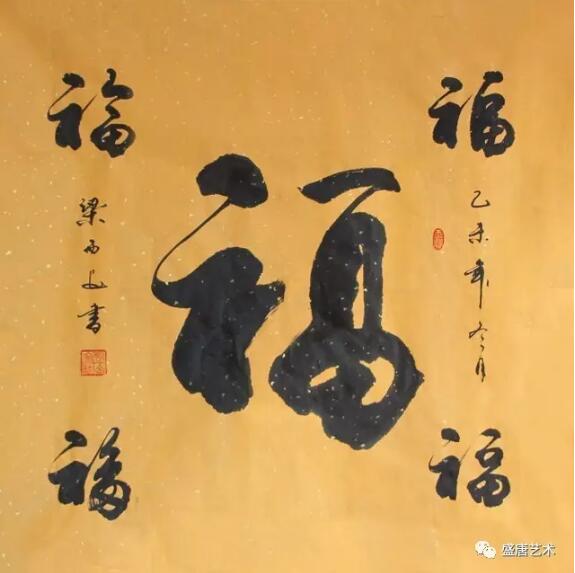 福
福
福
福
福
乙未年冬月
梁西文书
盛唐艺术